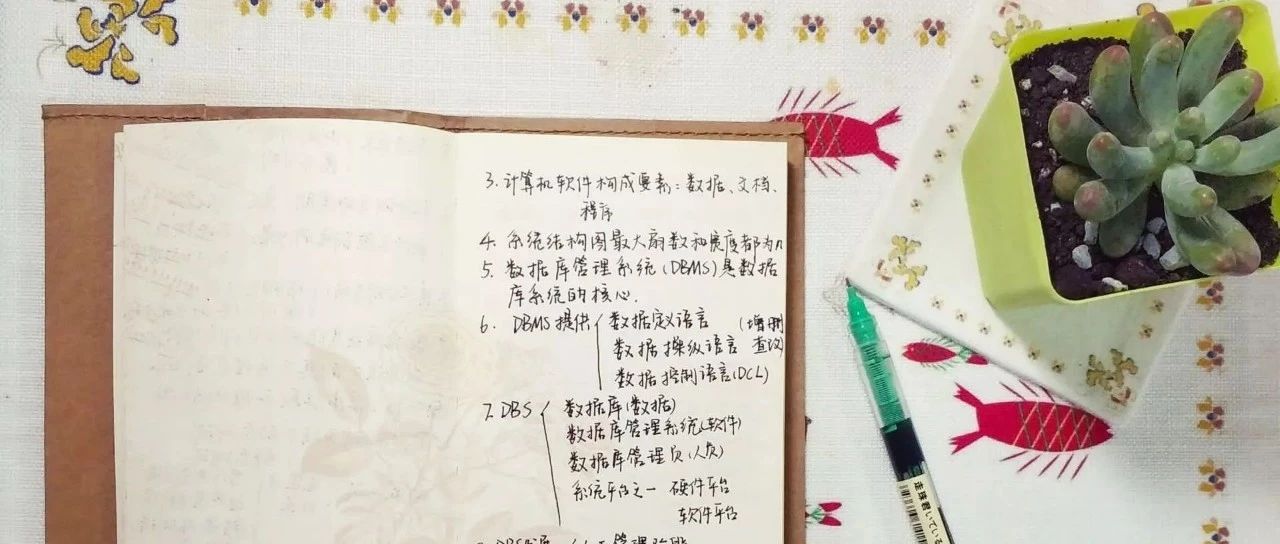 3. 计算机软件构成要素：数据、文档、
程序
4. 系统结构图最大扇数和宽度都为n
5. 数据库管理系统(DBMS)是数据
库系统的核心.
6. DBMS提供 数据定义语言 (增删
数据操纵语言 查改)
数据控制语言(DCL)
7. DBS 数据库(数据)
数据库管理系统(软件)
数据库管理员(人员)
系统平台之一 硬件平台
软件平台
走珠君いている